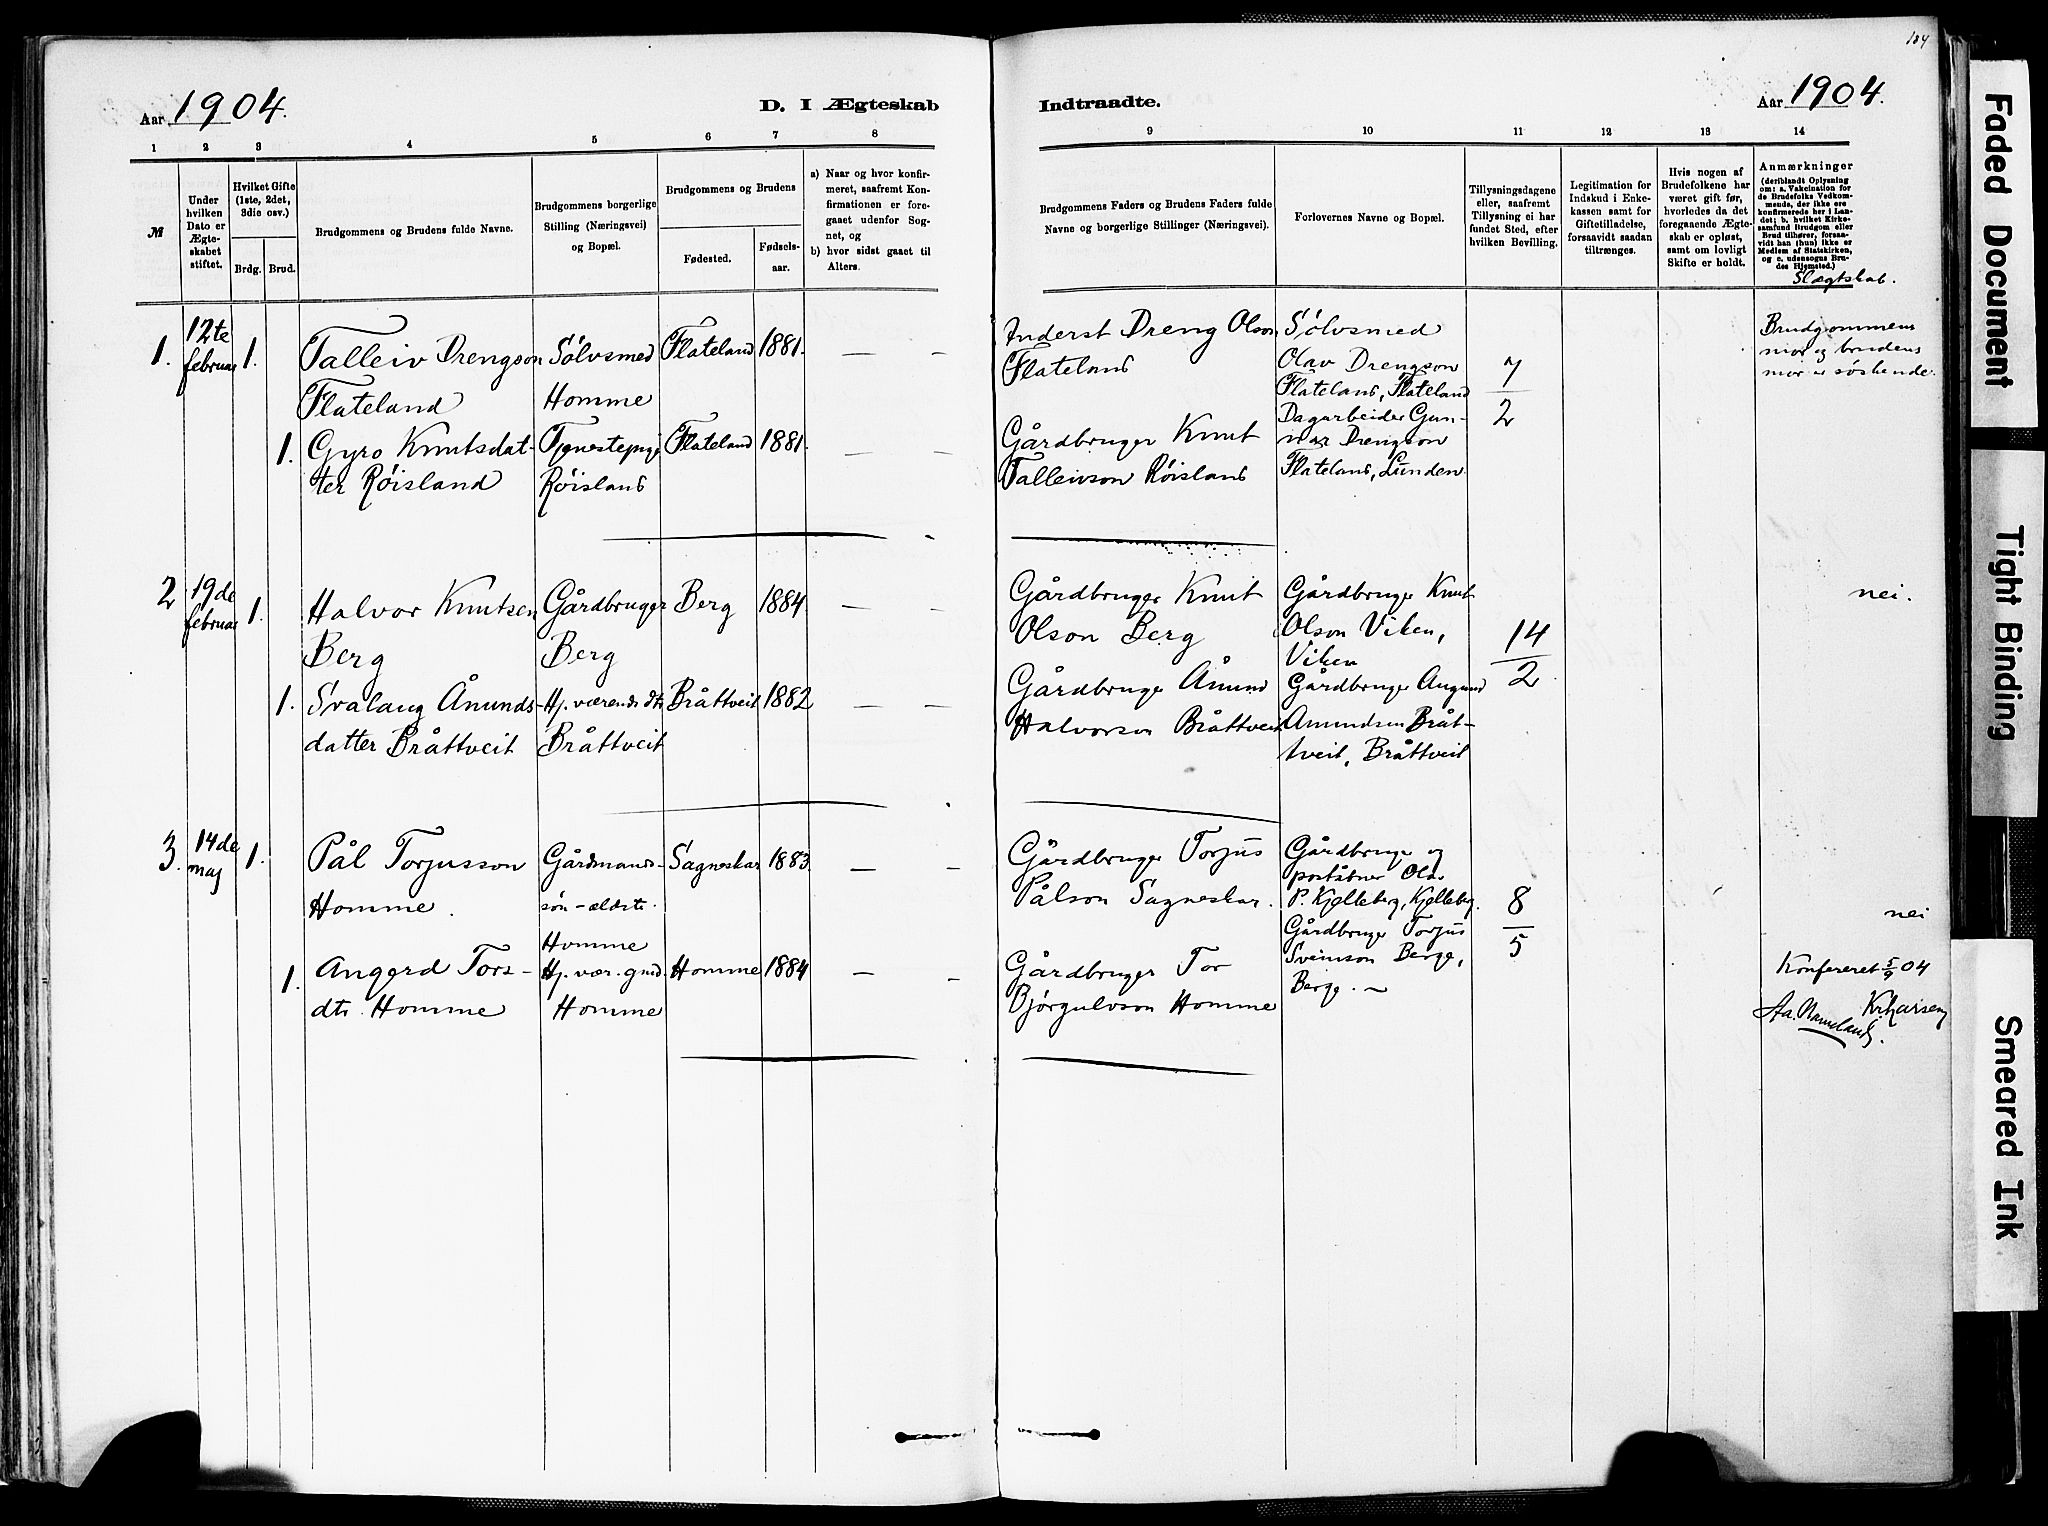 184
Aar 1904.
D. I Ægteskab
Indtraadte.
Aar 1904.
1
2
3
4
5
6
7
8
9
10
11
12
13
14
№
Under
hvilken
Dato er
Ægte-
skabet
stiftet.
Hvilket Gifte
(1ste, 2det,
3die osv.)
Brdg. Brud.
Brudgommens og Brudens fulde Navne.
Brudgommens borgerlige
Stilling (Næringsvei)
og Bopæl.
Brudgommens og Brudens
Fødested.
Fødsels-
aar.
a) Naar og hvor konfir-
meret, saafremt Kon-
firmationen er fore-
gaaet udenfor Sog-
net, og
b) hvor sidst gaaet til
Alters.
Brudgommens Faders og Brudens Faders fulde
Navne og borgerlige Stillinger (Næringsvei).
Forlovernes Navne og Bopæl.
Tillysningsdagene
eller, saafremt
Tillysning ei har
fundet Sted, efter
hvilken Bevilling.
Legitimation for
Indskud i Enke-
kassen samt for
Giftetilladelse,
forsaavidt saadan
tiltrænges.
Hvis nogen af
Brudefolkene har
været gift før,
hvorledes da det
foregaaende Ægte-
skab er opløst,
samt om lovligt
Skifte er holdt.
Anmærkninger
(deriblandt Oplysning
om: a. Vakcination for
de Brudefolks Vedkom-
mende, der ikke ere
konfirmerede her i Lan-
det; b. hvilket Kirke-
samfund Brudgom eller
Brud tilhører, forsaa-
vidt han (hun) ikke er
Medlem af Statskirken,
og c. udensogns Bru-
des Hjemsted.)
Slægtskab.
1.
12te
februar
1.
Talleiv Drengson
Flateland
Sølvsmed
Homme
Flateland
1881.
— -
Inderst Dreng Olson
Flateland
Sølvsmed
Olav Drengson
Flateland, Flateland
7
2
Brudgommens
mor og brudens
mor er søskende.
1.
Gyro Knutsdat-
ter Røisland
Tjenestepige
Røisland
Flateland
1881.
— —
Gårdbruger Knut
Talleivson Røisland
Dagarbeider Gun-
nar Drengson
Flateland, Lunden
2
19de
februar
1.
Halvor Knutsen
Berg
Gårdbruger
Berg
Berg
1884
— —
Gårdbruger Knut
Olson Berg
Gårdbruger Knut
Olson Viken,
Viken
14
2
nei.
1.
Svalaug Ånunds-
datter Bråttveit
Hj. værende dtr
Bråttveit
Bråttveit
1882
— —
Gårdbruger Ånund
Halvorson Bråttveit
Gårdbruger Augund
Anundsen Bråt-
tveit, Bråttveit
3.
14de
maj
1.
Pål Torjusson
Homme.
Gårdmands-
søn-ældste.
Homme
Sagneskar
1883.
— —
Gårdbruger Torjus
Pålson Sagneskar.
Gårdbruger og
poståbner Olav
P. Kjelleberg, Kjelleberg.
8
5
nei
1.
Angerd Tors-
dtr. Homme
Hj. vær. gmd.
Homme
Homme
1884
— —
Gårdbruger Tor
Bjørgulvson Homme
Gårdbruger Torjus
Sveinson Berge,
Berge. —
Konfereret 5/9 04
Kr. Larsen
Aa. Nomeland.
Faded Document
Tight Binding
Smeared Ink